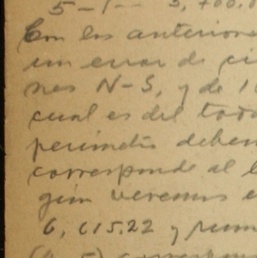 5-1-- 3,700.0
Con los anteriores
un error de ci
nes N-S, y de 1
cual es del todo
perimetro deben
corresponde al l
gún veremos e
6,615.22 y